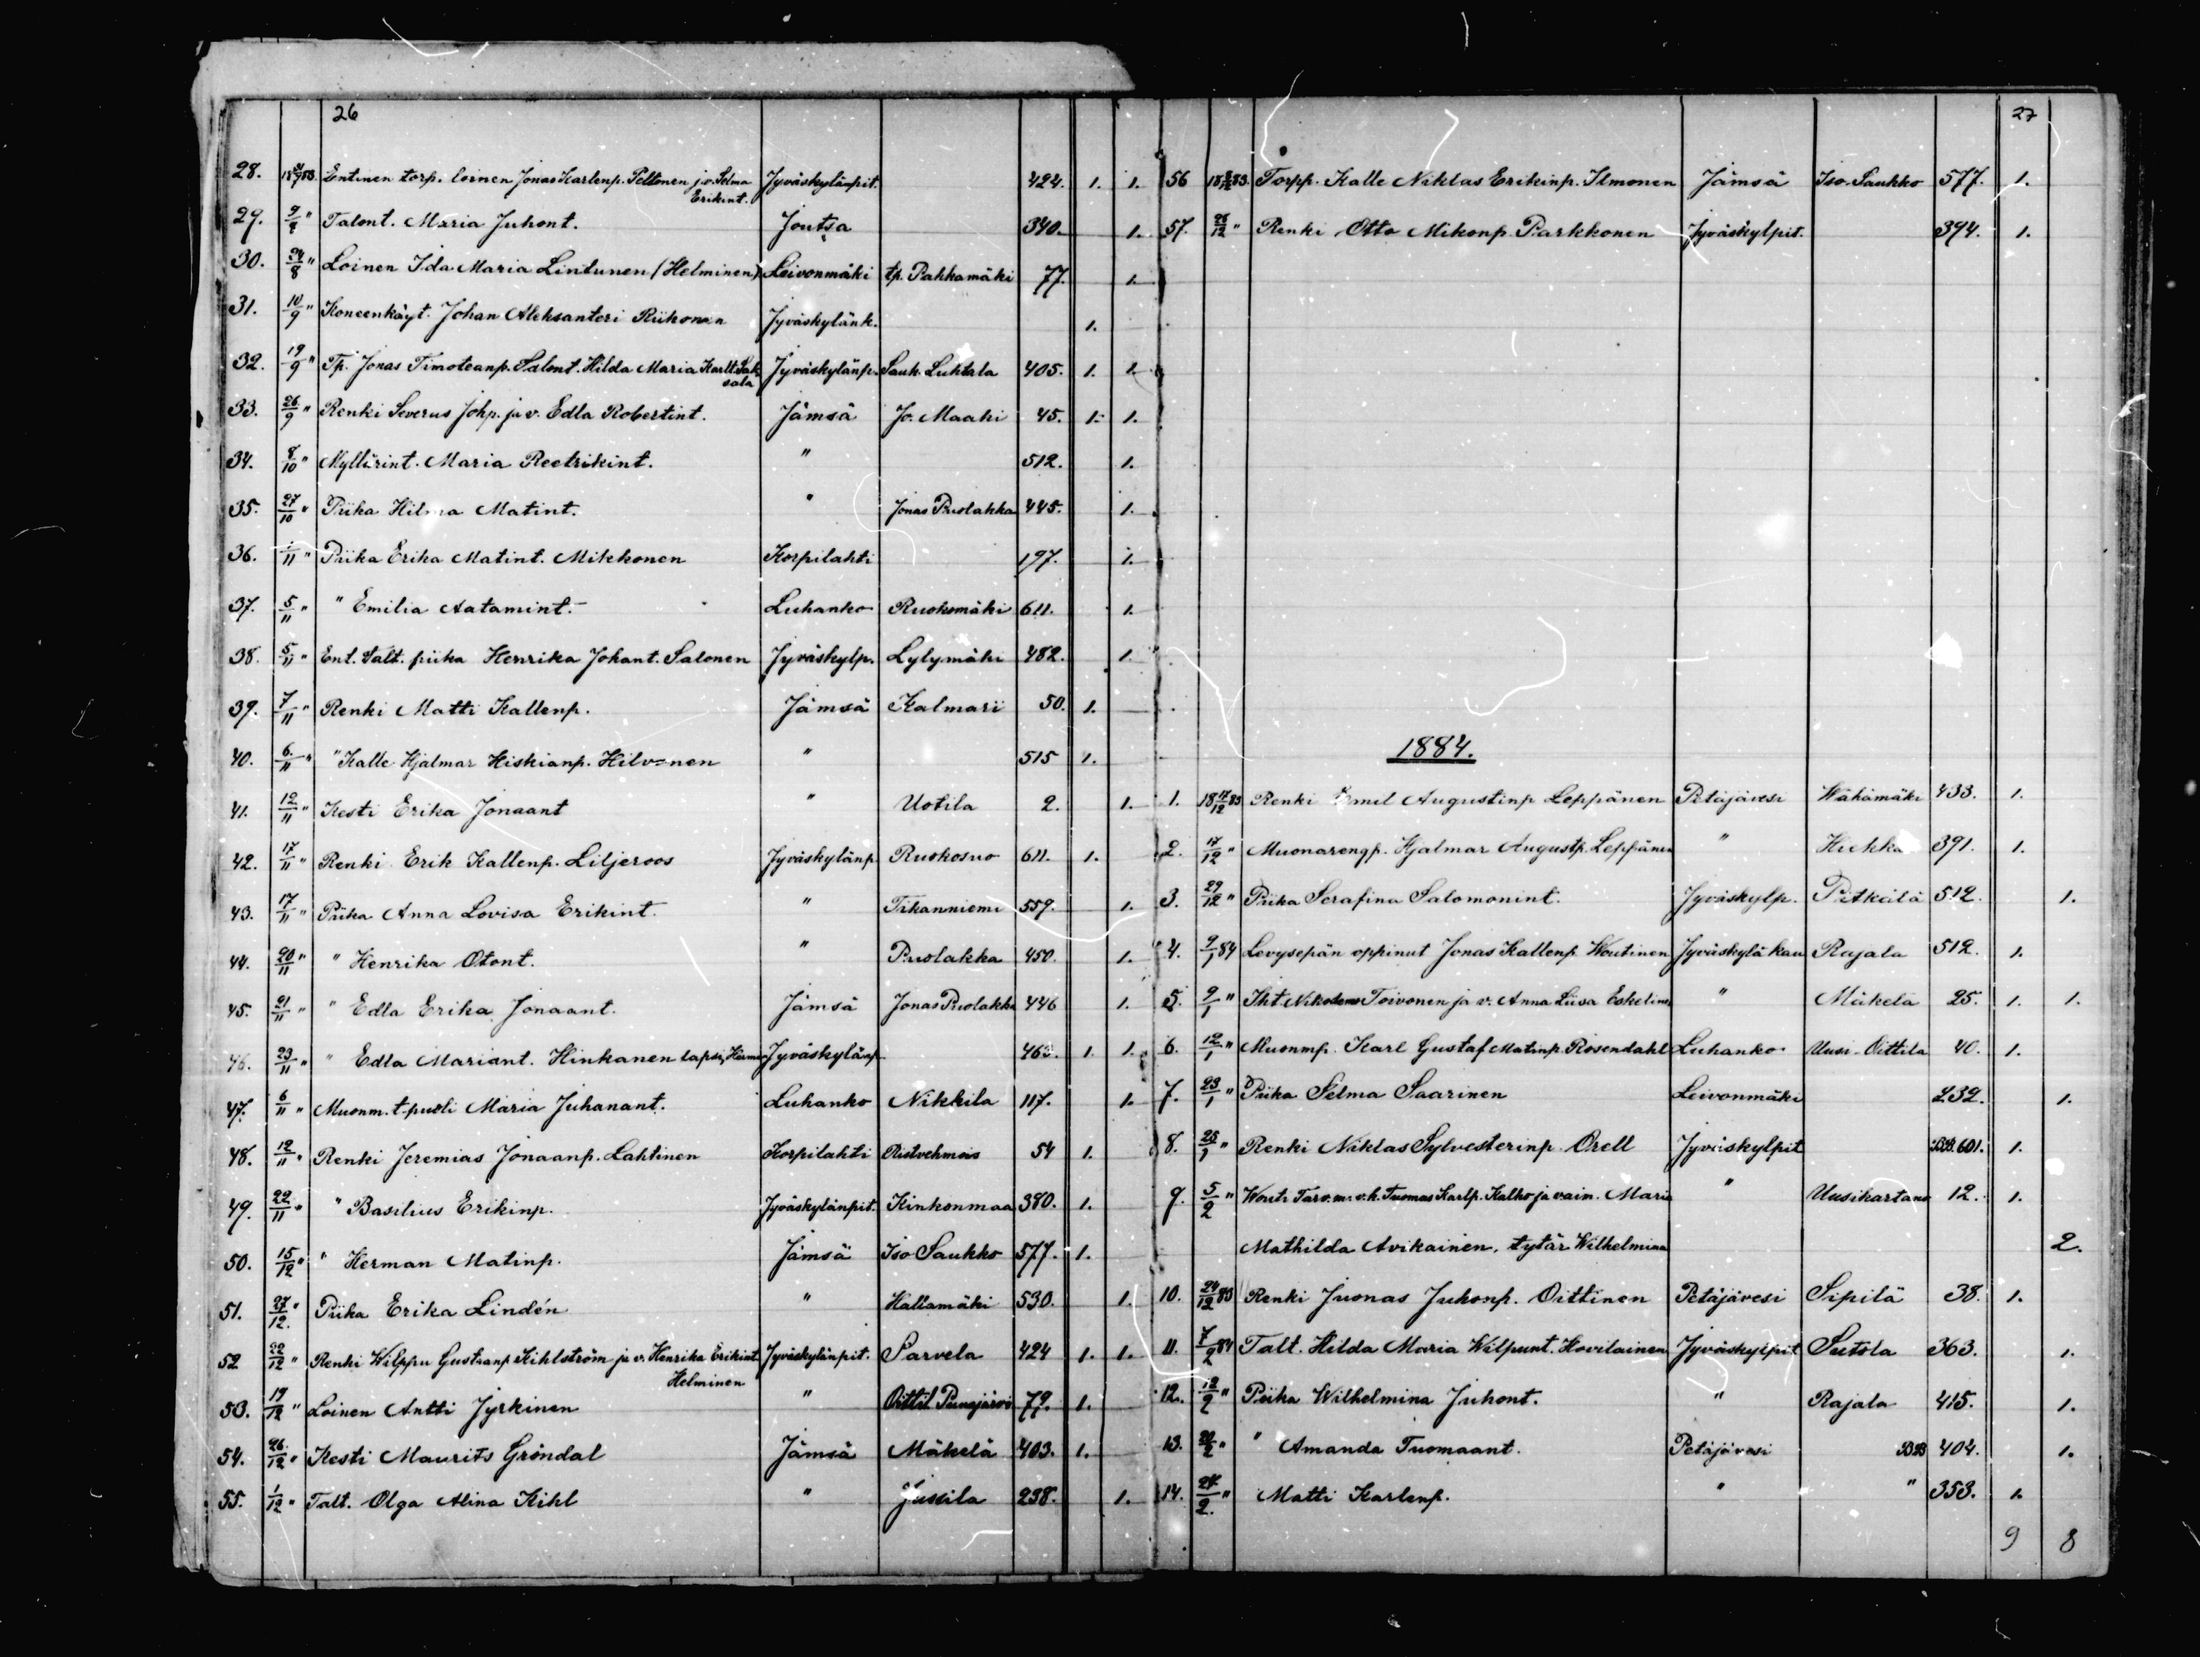 26
28. Entinen torp. loinen Jonas Karlenp. Peltonen ja v. Selma Jyväskylänpit. 424. 1. 1.
Erikint.
29. " Talont. Maria Juhont. Joutsa 340. 1.
30. 24/8 " Loinen Ida Maria Lintunen (Helminen) Leivonmäki tp. Pakkamäki 77. 1.
31. 10/9 " Koneenkäyt. Johan Aleksanteri Riihonen Jyväskylänk. 1.
32. 19/9 " Tp. Jonas Timoteanp. Salont. Hilda Maria Karlt. Sak- Jyväskylänp. Sauk. Luhtala 405. 1. 1.
sala
33. 26/9 " Renki Severus Johp. ja v. Edla Robertint. Jämsä Jo. Maahi 45. 1. 1.
34. 8/10 " Myllärint. Maria Reetrikint. " 512. 1.
35. 27/10 " Piika Hilma Matint. " Jonas Puolakka 445. 1.
36. 1/11 " Piika Erika Matint. Mikkonen Korpilahti 197. 1.
37. 5/11 " " Emilia Aatamint. Luhanko Ruokomäki 611. 1.
38. 5/11 " Ent. Talt. piika Henrika Johant. Salonen Jyväskylp. Lylymäki 482. 1.
39. 7/11 " Renki Matti Kallenp. Jämsä Kalmari 50. 1.
40. 6/11 " " Kalle Hjalmar Hiskianp. Hilvonen " 515 1.
41. 12/11 " Kesti Erika Jonaant " Uotila 2. 1.
42. 17/11 " Renki Erik Kallenp. Liljeroos Jyväskylänp. Ruokosuo 611. 1.
43. 17/11 " Piika Anna Lovisa Erikint. " Tikanniemi 559. 1.
44. 20/11 " " Henrika Otont. " Puolakka 450. 1.
45. 21/11 " " Edla Erika Jonaant. Jämsä Jonas Puolakka 446 1.
46. 23/11 " " Edla Mariant. Hinkanen lapsi, Jyväskylänp. 1. 1.
47. 6/11 " Muonm. t-puoli Maria Juhanant. Luhanko Nikkila 117. 1.
48. 12/11 " Renki Jeremias Jonaanp. Lahtinen Korpilahti Ristvehmas 54 1.
49. 22/11 " " Basilius Erikinp. Jyväskylänpit. Kinkonmaa 380. 1.
50. 15/12 " " Herman Matinp. Jämsä Iso Saukko 577. 1.
51. 27/12. " Piika Erika Lindén " Hallamäki 530. 1.
52 22/12 " Renki Wilppu Gustaanp. Kihlström ja v. Henrika Erikint. Jyväskylänpit. Sarvela 424 1. 1.
Helminen
53. 19/12 " Loinen Antti Jyrkinen " Oittil Punajärvi 79. 1.
54. 26/12 " Kesti Maurits Gröndal Jämsä Mäkelä 403. 1.
55. 1/12 " Talt. Olga Alina Kihl " Jussila 238. 1.
27
56 Torpp. Kalle Niklas Erikinp. Ilmonen Jämsä Iso. Saukko 577. 1.
57. 28/12 " Renki Otto Mikonp. Parkkonen Jyväskylpit. 394. 1.
1884.
1. 18 17/12 83 Renki Emil Augustinp Leppänen Petäjävesi Wähämäki 433. 1.
2. 17/12 " Muonarengp. Hjalmar Augustp. Leppänen " 391. 1.
3. 29/12 " Piika Serafina Salomonint. Jyväskylp. Pitkälä 512. 1.
4. 9/1 84 Levysepän oppinut Jonas Kallenp. Woutinen Jyväskylä kau Rajala 512. 1.
5. 9/1 " Itt Nikodemus Toivonen ja v. Anna Liisa Eskelinen " Mäkelä 25. 1. 1.
6. 12/1 " Muonmp. Karl Gustaf Matinp. Rosendahl Luhanko Uusi-Oittila 40. 1.
7. 23/1 " Piika Selma Saarinen Leivonmäki 232. 1.
8. 25/1 " Renki Niklas Sylvesterinp. Orell Jyväskylpit 601. 1.
9. 5/2 " Wouti Tarv. m. v. k. Tuomas Karlp. Kalho ja vaim. Maria " Uusikartano 12. 1.
Mathilda Avikainen, tytär Wilhelmina 2.
10. 24/12 83 Renki Juonas Juhonp. Oittinen Petäjävesi Sipilä 38. 1.
11. 7/2 84 Talt. Hilda Maria Wilpunt. Hovilainen Jyväskylpit Sutola 363. 1.
12. 12/2 " Piika Wilhelmina Juhont. " Rajala 415. 1.
13. 20/2 " " Amanda Tuomaant. Petäjävesi BB 404. 1.
14. 24/2. " Matti Karlenp. " " 353. 1.
9 8